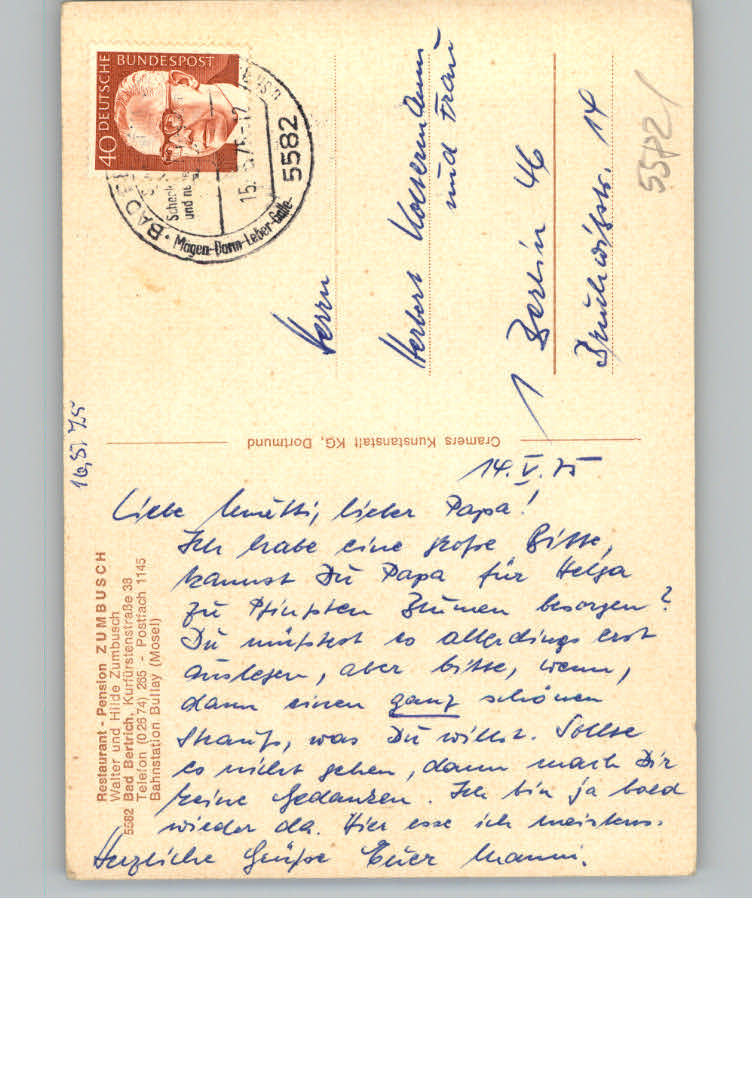 DEUTSCHE BUNDESPOST
40
BAD
5582
15.
75-12
Schenk
und
Magen-Darm-Leber-Galle
5582
Herrn
Herbert
und Frau
1 Berlin 46
14
Cramers Kunstanstalt KG, Dortmund
16.5.75
Restaurant - Pension ZUMBUSCH
Walter und Hilde Zumbusch
5582 Bad Bertrich, Kurfürstenstraße 38
Telefon (0 26 74) 265 - Postfach 1145
Bahnstation Bullay (Mosel)
14.V.75
Liebe Mutti, lieber Papa!
Ich habe eine große Bitte,
kannst Du Papa für Helga
zu Pfingsten Blumen besorgen?
Du müßtest es allerdings erst
auslegen, aber bitte, wenn,
dann einen ganz schönen
Strauß, was Du willst. Sollte
es nicht gehen, dann mach Dir
keine Gedanken. Ich bin ja bald
wieder da. Hier esse ich meistens.
Herzliche Grüße Euer Manni.